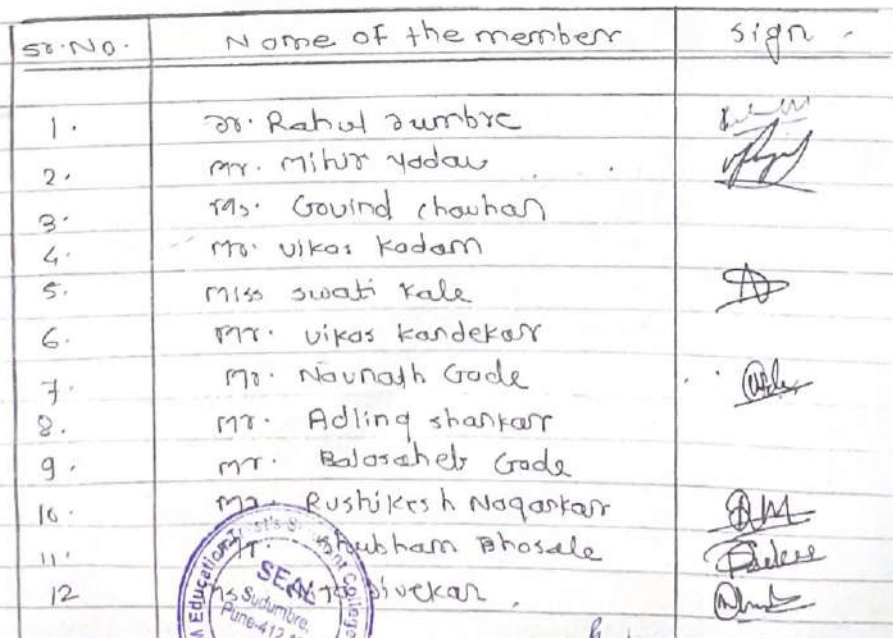 Sr.No. Name of the member sign
1. Dr. Rahul Dumbre
2. Mr. Mihir Yadav
3. Ms. Govind Chauhan
4. Mr. Vikas Kadam
5. Miss Swati Kale
6. Mr. Vikas Kandekar
7. Mr. Navnath Gade
8. Mr. Adling Shankar
9. Mr. Balasaheb Gade
10. Mr. Rushikesh Nagarkar
11. Shubham Bhosale
12 Ms Divekar
SEAL
Sudumbre,
Pune-412